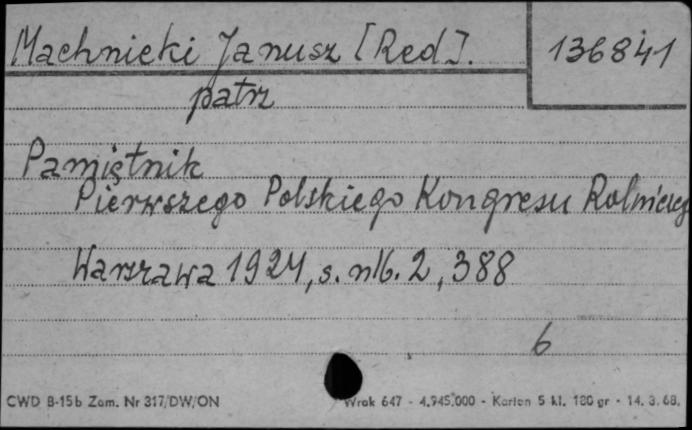 Machnicki Janusz [Red]. 136841
patrz
Pamiętnik
Pierwszego Polskiego Kongresu Rolniczeg
Warszawa 1924, s. nlb. 2, 388
6
CWD B-15b Zam. Nr 317/DW/ON Wrok 647 - 4.945.000 - Karton 5 kl. 180 gr - 14. 3. 68.